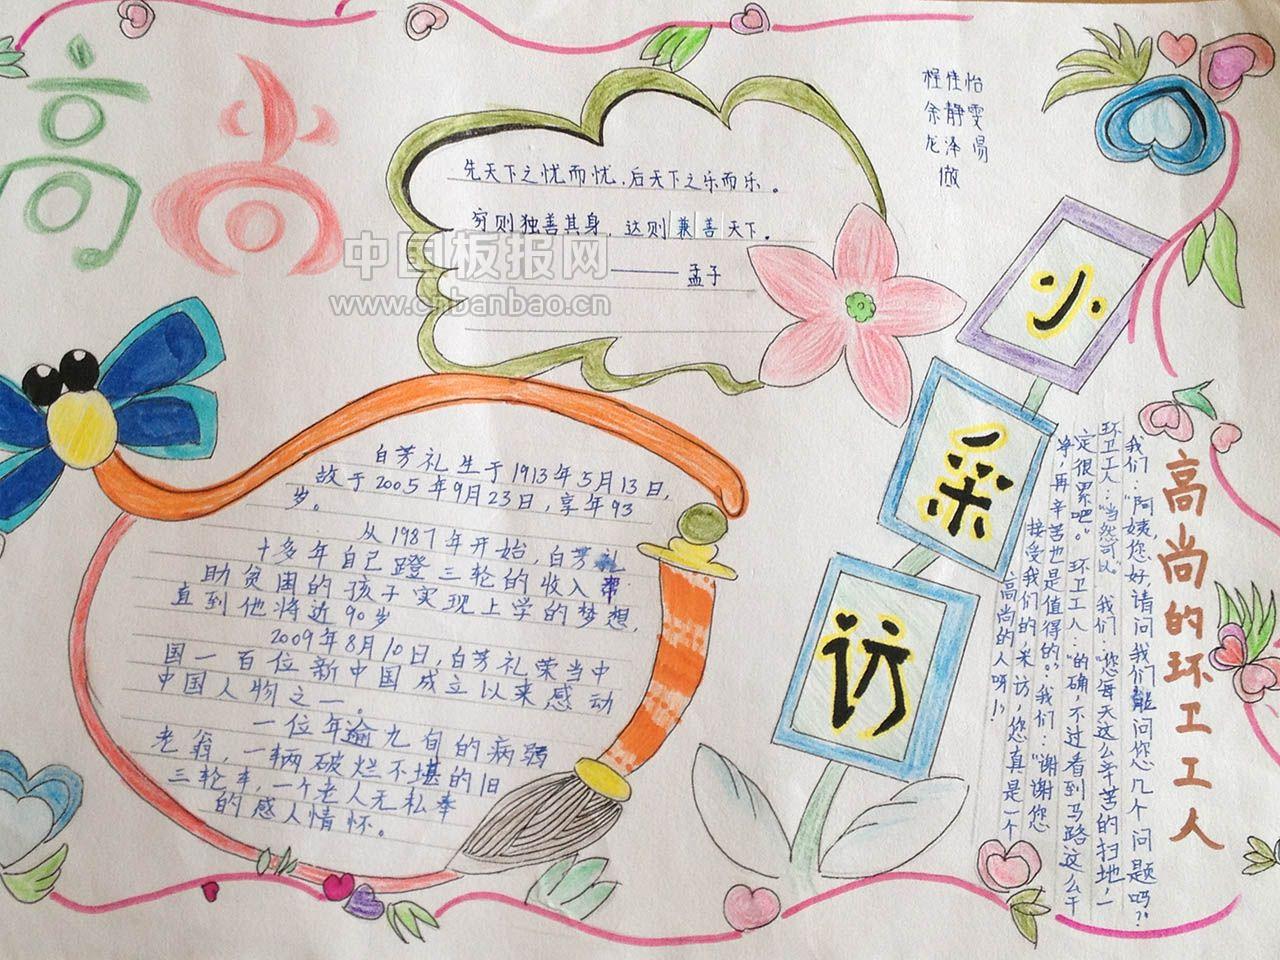 高尚
程佳怡
余静雯
龙泽
做
先天下之忧而忧,后天下之乐而乐。
穷则独善其身,达则兼善天下。
——孟子
中国板报网
www.chbanbao.cn
白芳礼生于1913年5月13日,
故于2005年9月23日,享年93
岁。
从1987年开始,白芳礼
十多年自己蹬三轮的收入帮
助贫困的孩子实现上学的梦想,
直到他将近90岁
2009年8月10日,白芳礼荣当中
国一百位新中国成立以来感动
中国人物之一。
一位年逾九旬的病弱
老翁,一辆破烂不堪的旧
三轮车,一个老人无私奉
的感人情怀。
小采访
高尚的环卫工人
我们:“阿姨您好,请问我们能问您几个问题吗?”
环卫工人:“当然可以”我们:“您每天这么辛苦的扫地,一
定很累吧。”环卫工人:“的确,不过看到马路这么干
净,再辛苦也是值得的。”我们:“谢谢您
接受我们的采访,您真是一个
高尚的人呀!”